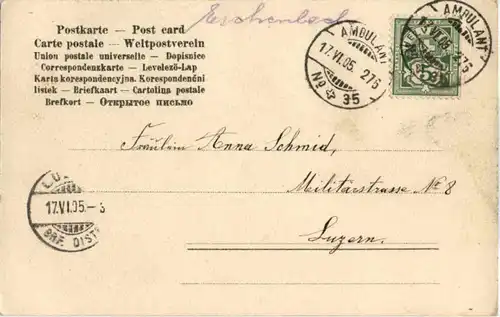 Eschenbach
Postkarte — Post card
Carte postale — Weltpostverein
Union postale universelle — Dopisnice
Correspondenzkarte — Levelező-Lap
Karta korespondencyjna. Korespondenční
listek — Briefkaart — Cartolina postale
Brefkort — Открытое письмо
AMBULANT
17.VI.05. 276
No 35
AMBULANT
VI.05. 276
5
Fräulein Anna Schmid,
Militärstrasse No 8
Luzern.
LUZ
17.VI.05.- 3
BRF. DISTR